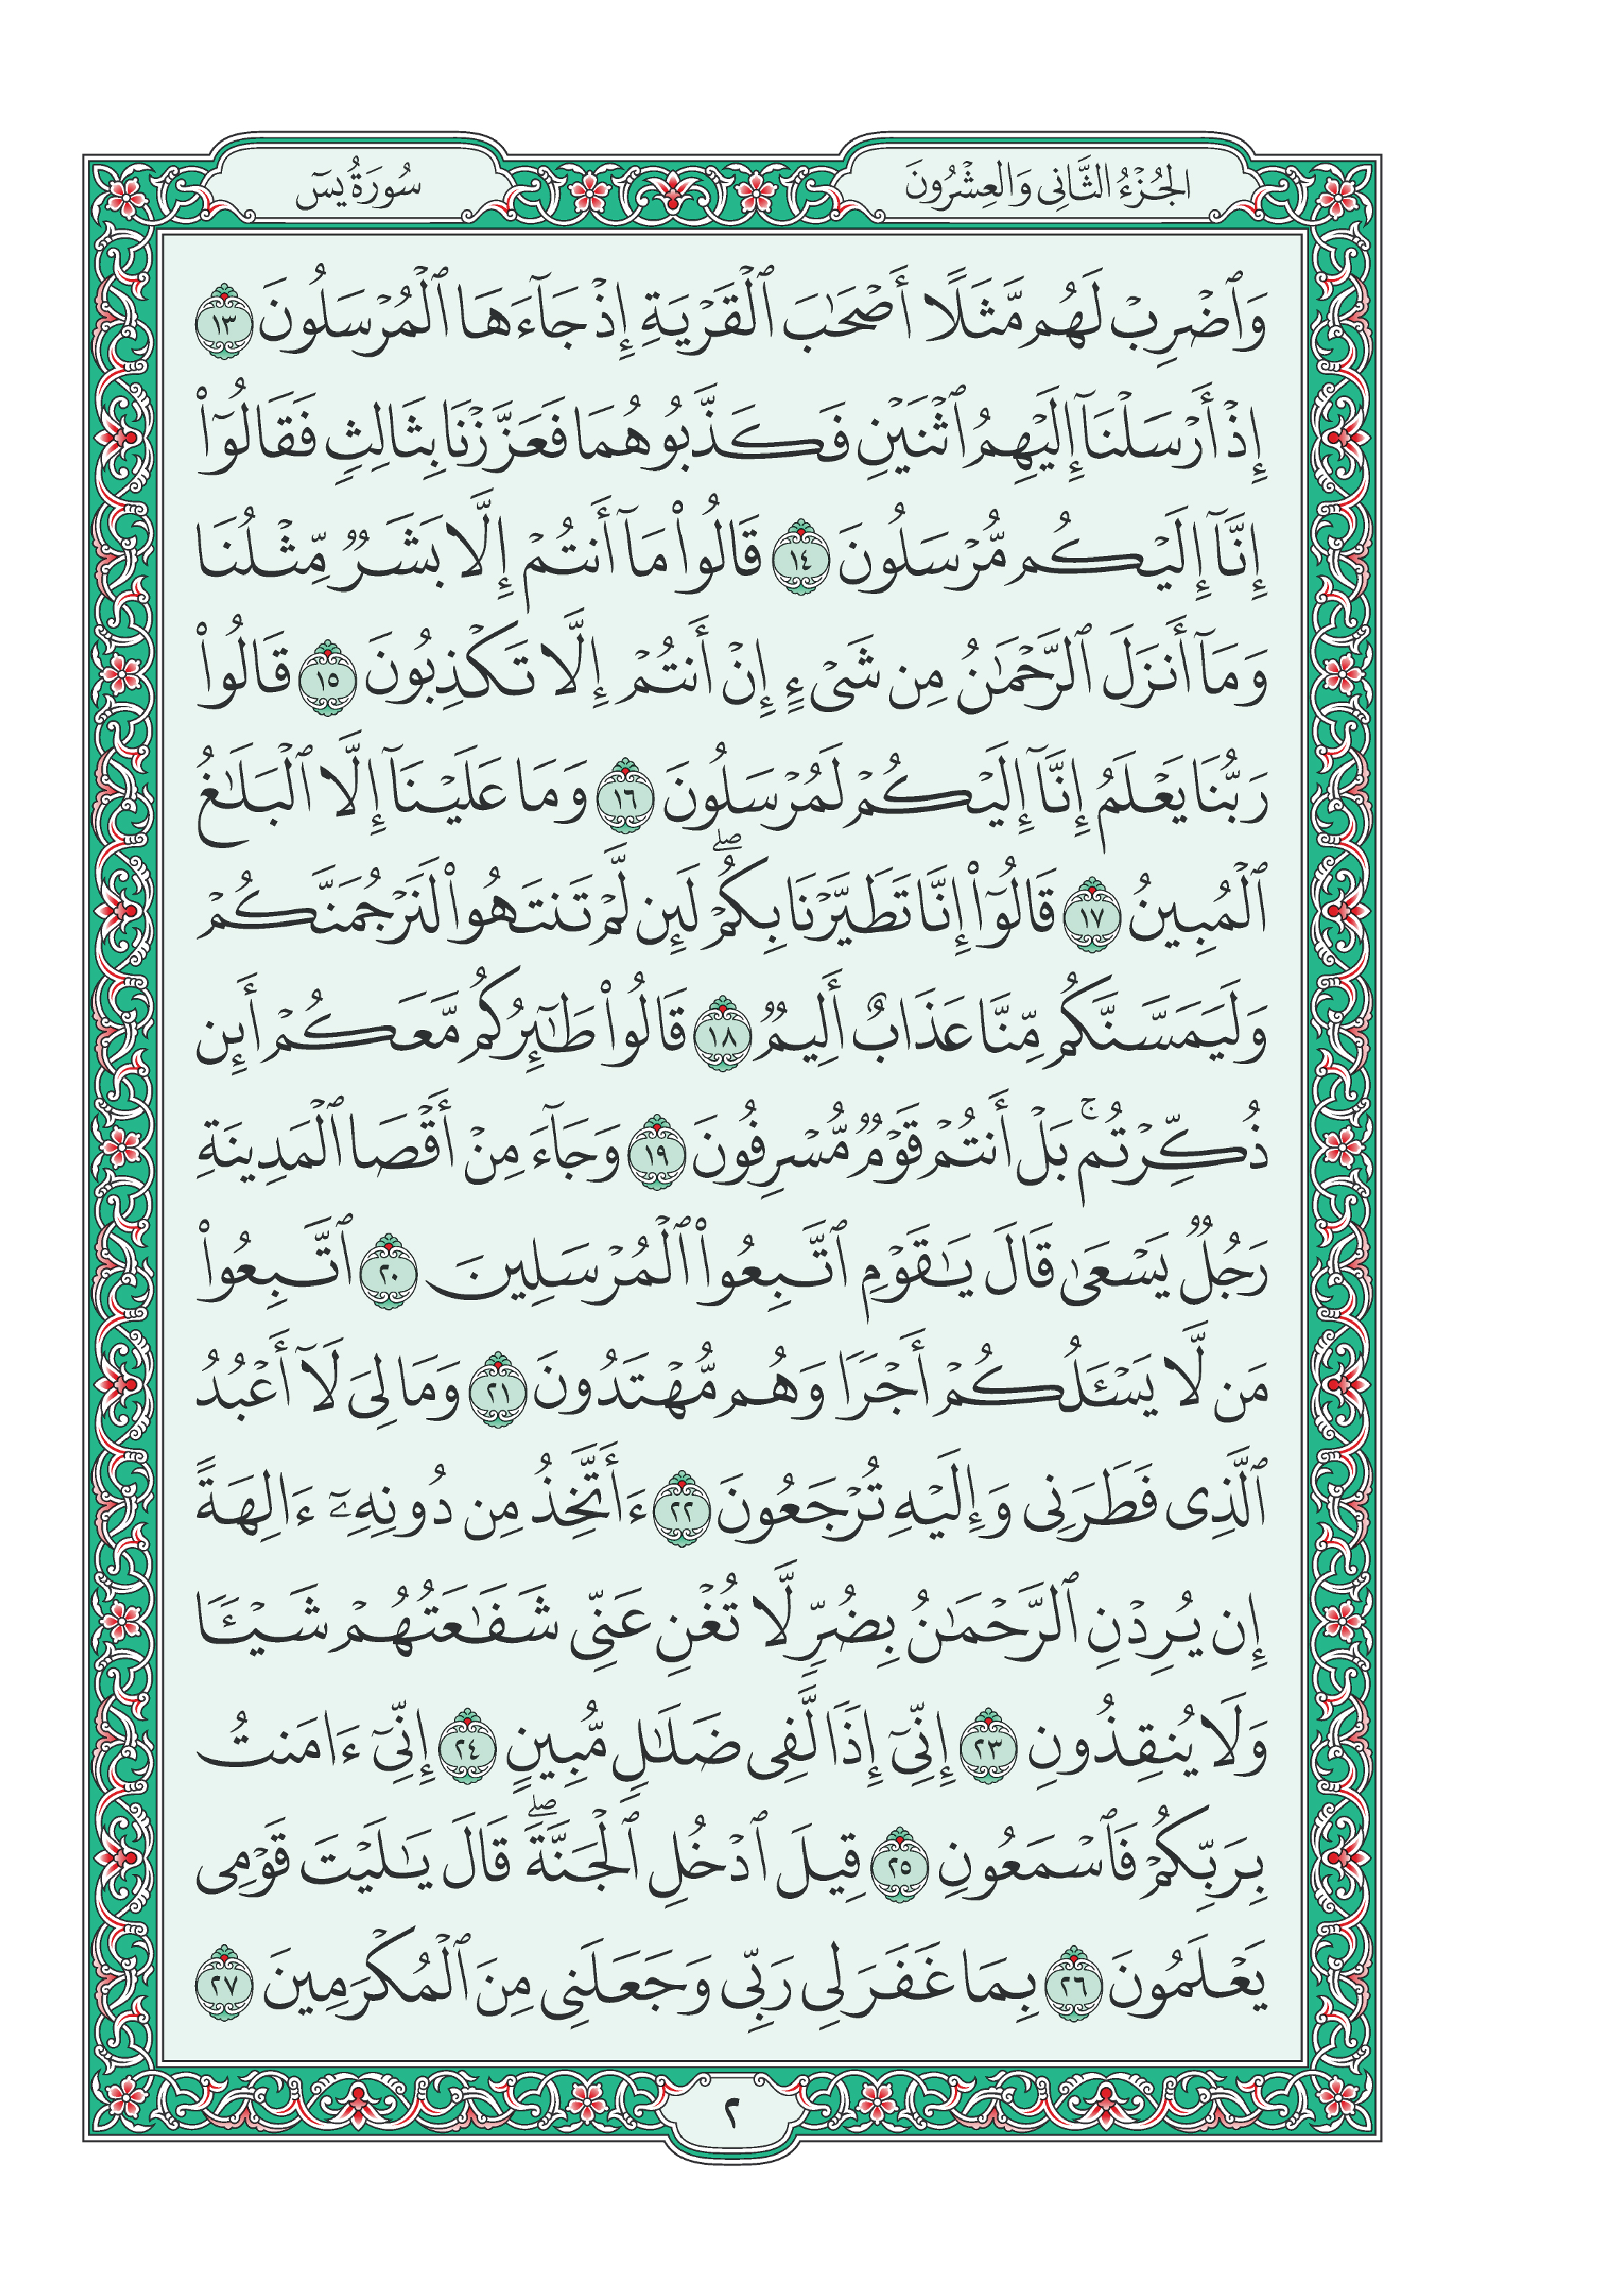 الجُزْءُ الثَّانِي وَالعِشْرُونَ
سُورَةُ يسٓ
وَٱضْرِبْ لَهُم مَّثَلًا أَصْحَٰبَ ٱلْقَرْيَةِ إِذْ جَآءَهَا ٱلْمُرْسَلُونَ ١٣
إِذْ أَرْسَلْنَآ إِلَيْهِمُ ٱثْنَيْنِ فَكَذَّبُوهُمَا فَعَزَّزْنَا بِثَالِثٍ فَقَالُوٓا۟
إِنَّآ إِلَيْكُم مُّرْسَلُونَ ١٤ قَالُوا۟ مَآ أَنتُمْ إِلَّا بَشَرٌ مِّثْلُنَا
وَمَآ أَنزَلَ ٱلرَّحْمَٰنُ مِن شَىْءٍ إِنْ أَنتُمْ إِلَّا تَكْذِبُونَ ١٥ قَالُوا۟
رَبُّنَا يَعْلَمُ إِنَّآ إِلَيْكُمْ لَمُرْسَلُونَ ١٦ وَمَا عَلَيْنَآ إِلَّا ٱلْبَلَٰغُ
ٱلْمُبِينُ ١٧ قَالُوٓا۟ إِنَّا تَطَيَّرْنَا بِكُمْ ۖ لَئِن لَّمْ تَنتَهُوا۟ لَنَرْجُمَنَّكُمْ
وَلَيَمَسَّنَّكُم مِّنَّا عَذَابٌ أَلِيمٌ ١٨ قَالُوا۟ طَٰٓئِرُكُم مَّعَكُمْ أَئِن
ذُكِّرْتُم ۚ بَلْ أَنتُمْ قَوْمٌ مُّسْرِفُونَ ١٩ وَجَآءَ مِنْ أَقْصَا ٱلْمَدِينَةِ
رَجُلٌ يَسْعَىٰ قَالَ يَٰقَوْمِ ٱتَّبِعُوا۟ ٱلْمُرْسَلِينَ ٢٠ ٱتَّبِعُوا۟
مَن لَّا يَسْـَٔلُكُمْ أَجْرًا وَهُم مُّهْتَدُونَ ٢١ وَمَا لِىَ لَآ أَعْبُدُ
ٱلَّذِى فَطَرَنِى وَإِلَيْهِ تُرْجَعُونَ ٢٢ ءَأَتَّخِذُ مِن دُونِهِۦٓ ءَالِهَةً
إِن يُرِدْنِ ٱلرَّحْمَٰنُ بِضُرٍّ لَّا تُغْنِ عَنِّى شَفَٰعَتُهُمْ شَيْـًٔا
وَلَا يُنقِذُونِ ٢٣ إِنِّىٓ إِذًا لَّفِى ضَلَٰلٍ مُّبِينٍ ٢٤ إِنِّىٓ ءَامَنتُ
بِرَبِّكُمْ فَٱسْمَعُونِ ٢٥ قِيلَ ٱدْخُلِ ٱلْجَنَّةَ ۖ قَالَ يَٰلَيْتَ قَوْمِى
يَعْلَمُونَ ٢٦ بِمَا غَفَرَ لِى رَبِّى وَجَعَلَنِى مِنَ ٱلْمُكْرَمِينَ ٢٧
٢